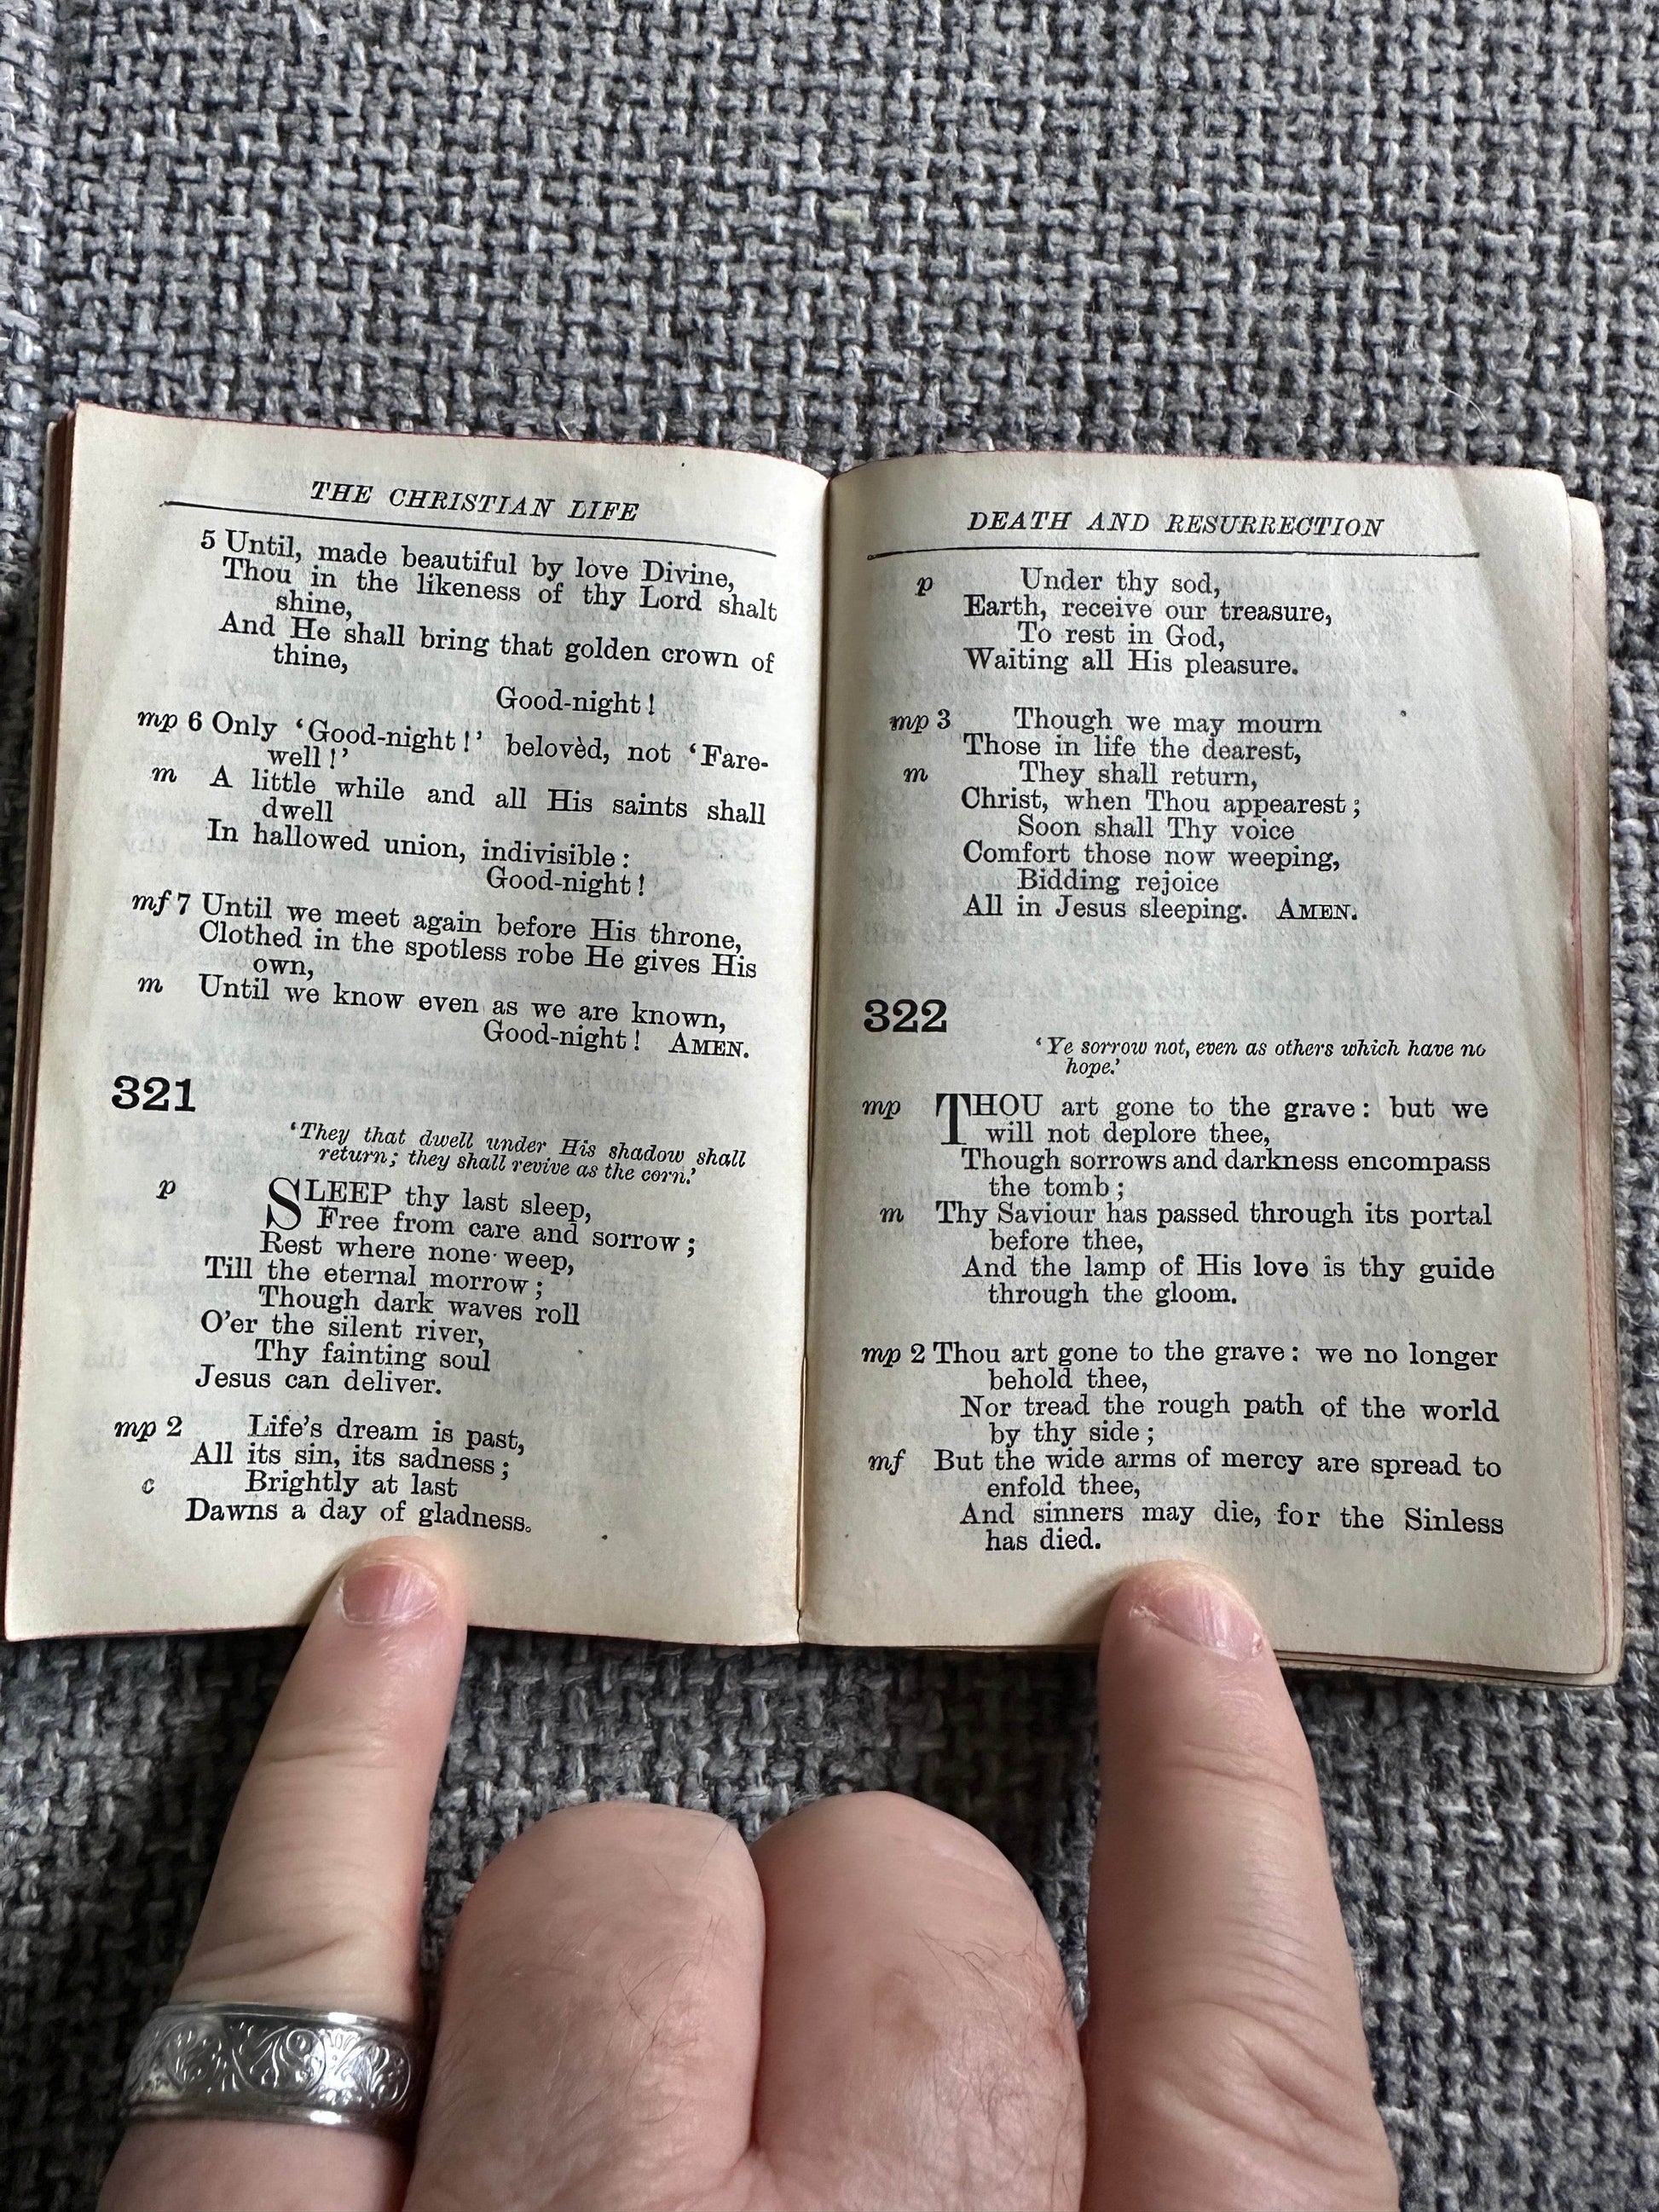 THE CHRISTIAN LIFE
5 Until, made beautiful by love Divine,
Thou in the likeness of thy Lord shalt
shine,
And He shall bring that golden crown of
thine,
Good-night!
mp 6 Only ‘Good-night!’ belovèd, not ‘Fare-
well!’
m A little while and all His saints shall
dwell
In hallowed union, indivisible:
Good-night!
mf 7 Until we meet again before His throne,
Clothed in the spotless robe He gives His
own,
m Until we know even as we are known,
Good-night! AMEN.
321
‘They that dwell under His shadow shall
return; they shall revive as the corn.’
p SLEEP thy last sleep,
Free from care and sorrow;
Rest where none weep,
Till the eternal morrow;
Though dark waves roll
O’er the silent river,
Thy fainting soul
Jesus can deliver.
mp 2 Life’s dream is past,
All its sin, its sadness;
c Brightly at last
Dawns a day of gladness.
DEATH AND RESURRECTION
p Under thy sod,
Earth, receive our treasure,
To rest in God,
Waiting all His pleasure.
mp 3 Though we may mourn
Those in life the dearest,
m They shall return,
Christ, when Thou appearest;
Soon shall Thy voice
Comfort those now weeping,
Bidding rejoice
All in Jesus sleeping. AMEN.
322
‘Ye sorrow not, even as others which have no
hope.’
mp THOU art gone to the grave: but we
will not deplore thee,
Though sorrows and darkness encompass
the tomb;
m Thy Saviour has passed through its portal
before thee,
And the lamp of His love is thy guide
through the gloom.
mp 2 Thou art gone to the grave: we no longer
behold thee,
Nor tread the rough path of the world
by thy side;
mf But the wide arms of mercy are spread to
enfold thee,
And sinners may die, for the Sinless
has died.